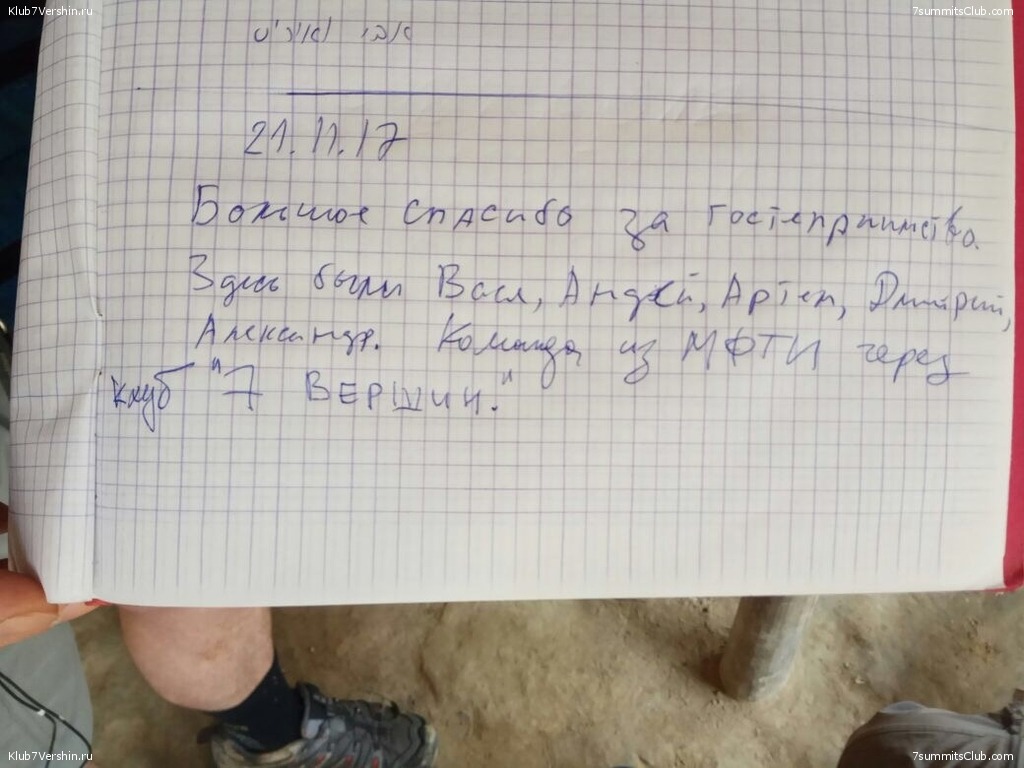 Klub7Vershin.ru
7summitsClub.com
21.11.17
Большое спасибо за гостеприимство.
Здесь были Вася, Андрей, Артем, Дмитрий,
Александр. Команда из МФТИ через
клуб "7 ВЕРШИН."
Klub7Vershin.ru
7summitsClub.com